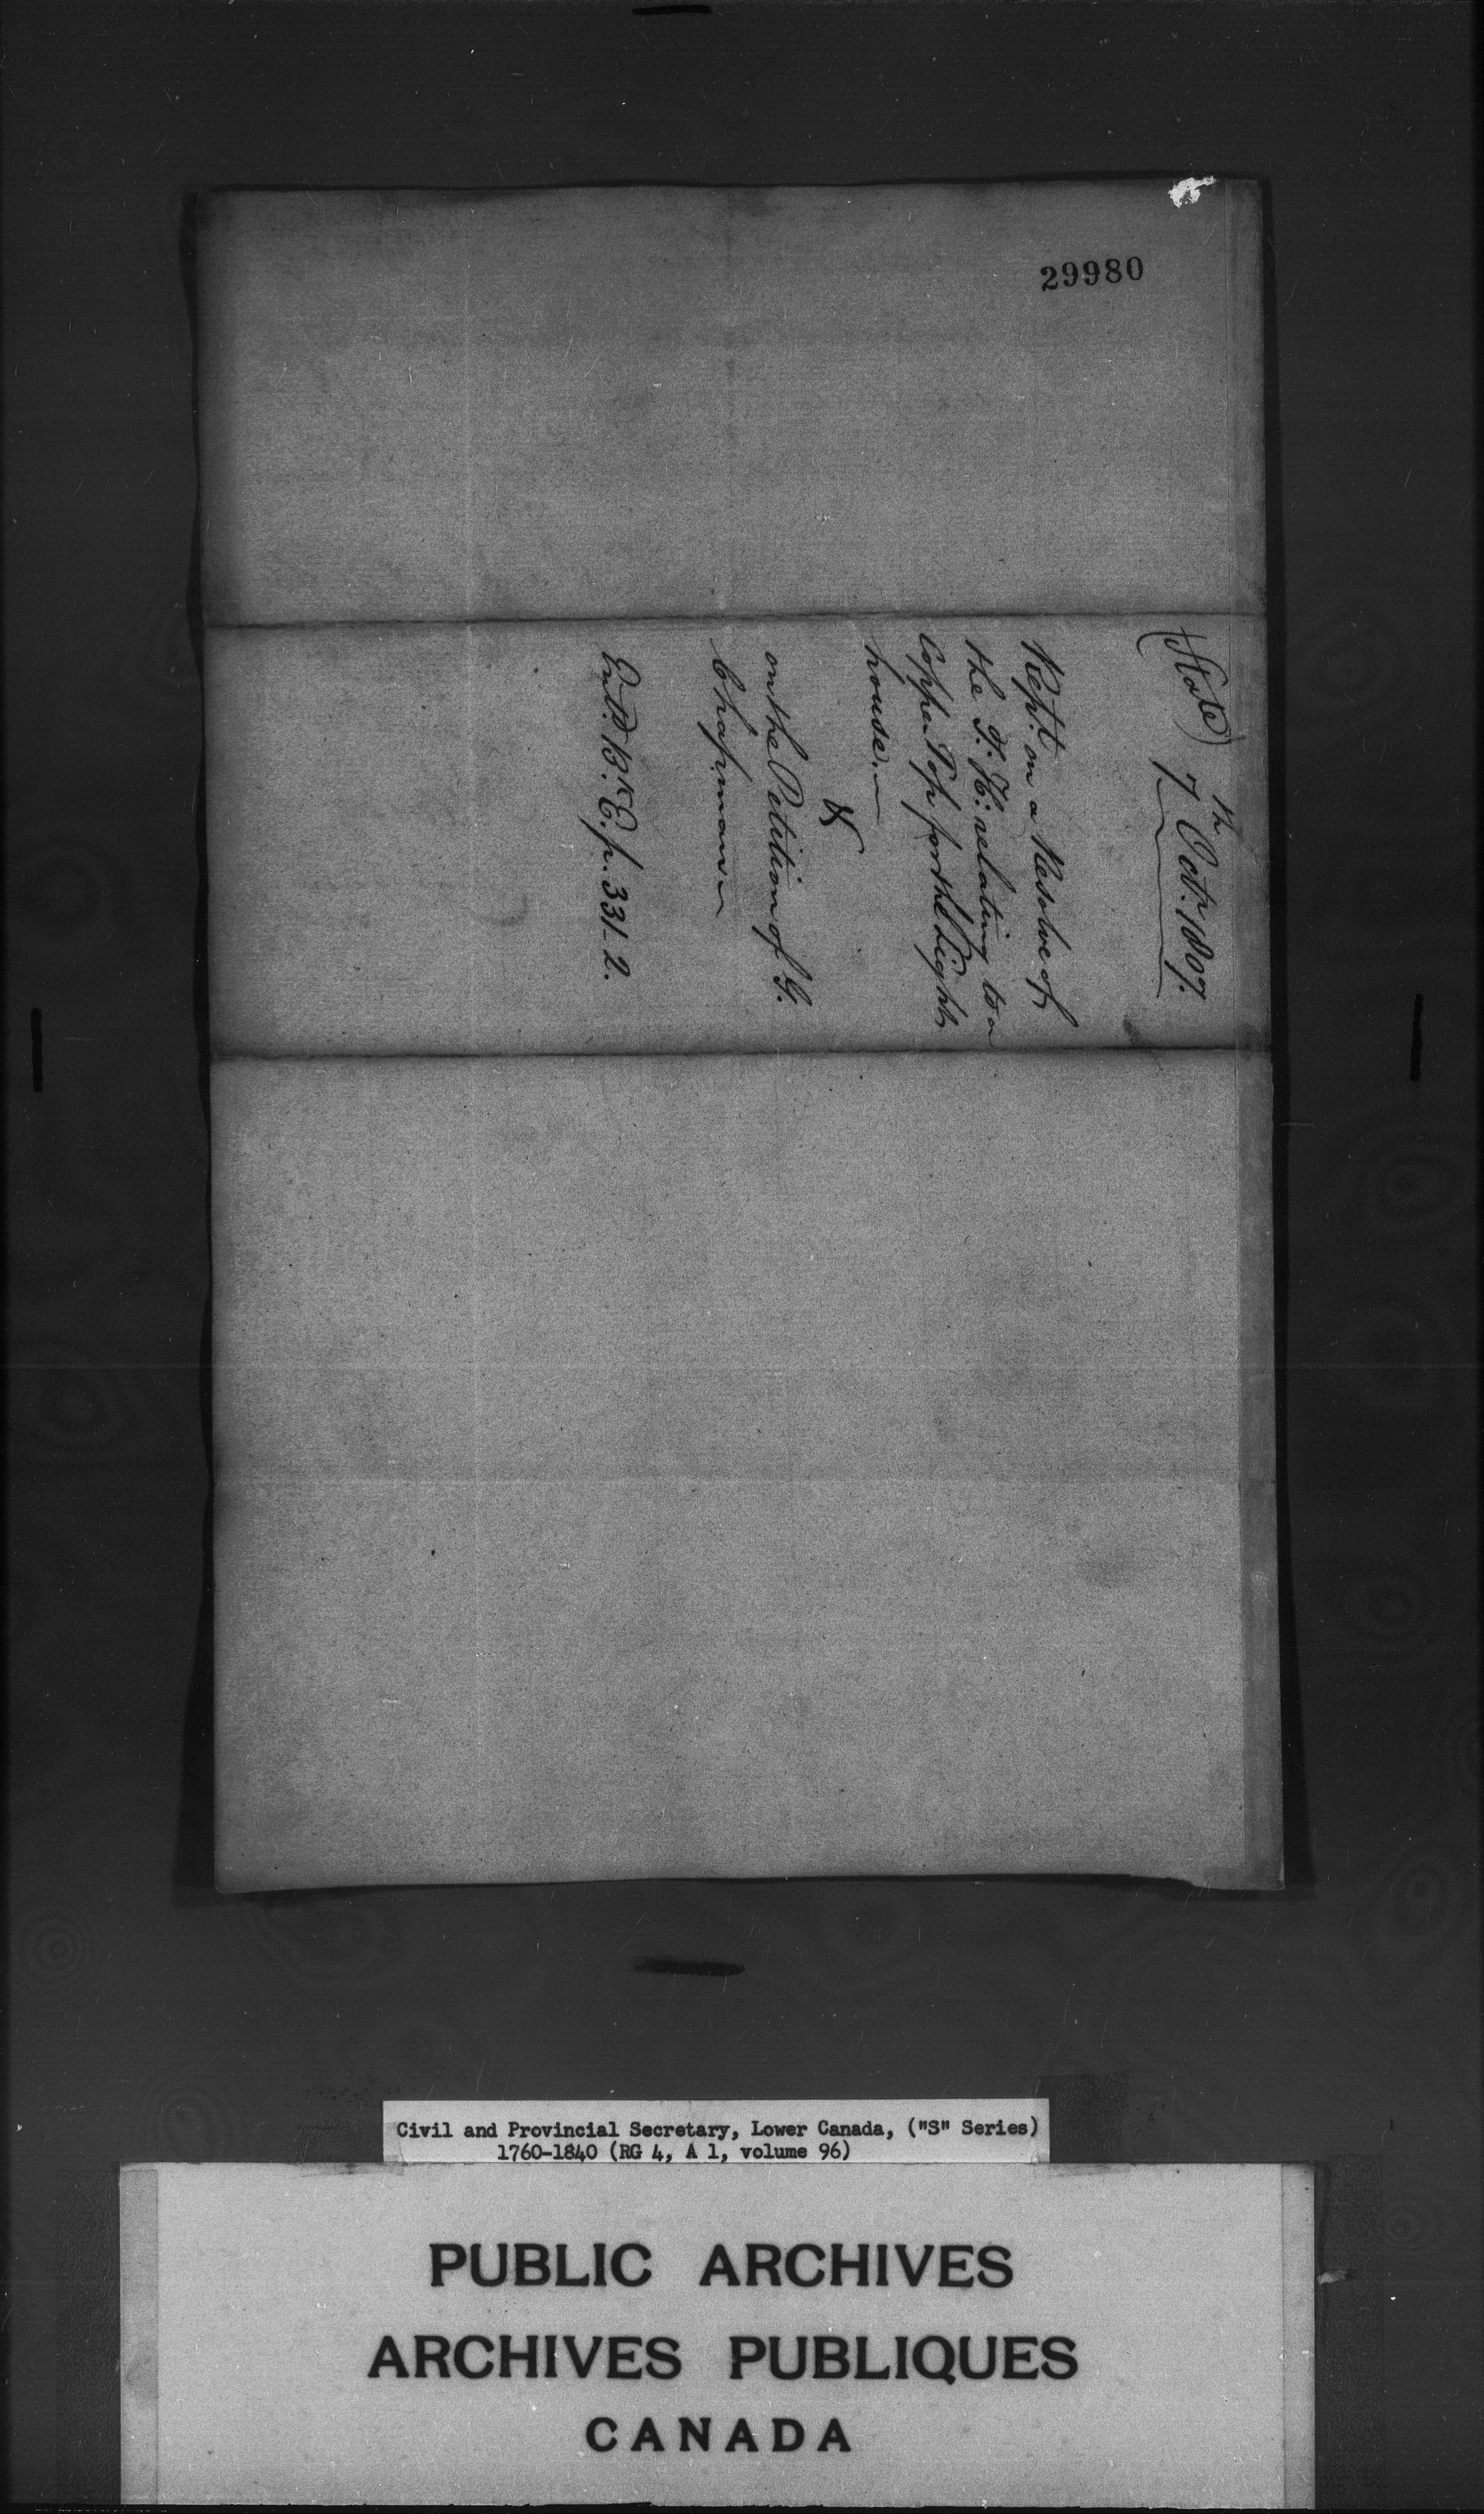 29980
(State) 7th Octr. 1807.
Rept. on a Resolve of
the T. H: relating to a
Copper Top for the Light
house.
&
on the Petition of G.
Chapman
Entd. Bk E. p. 331-2.
Civil and Provincial Secretary, Lower Canada, ("S" Series)
1760-1840 (RG 4, A 1, volume 96)
PUBLIC ARCHIVES
ARCHIVES PUBLIQUES
CANADA